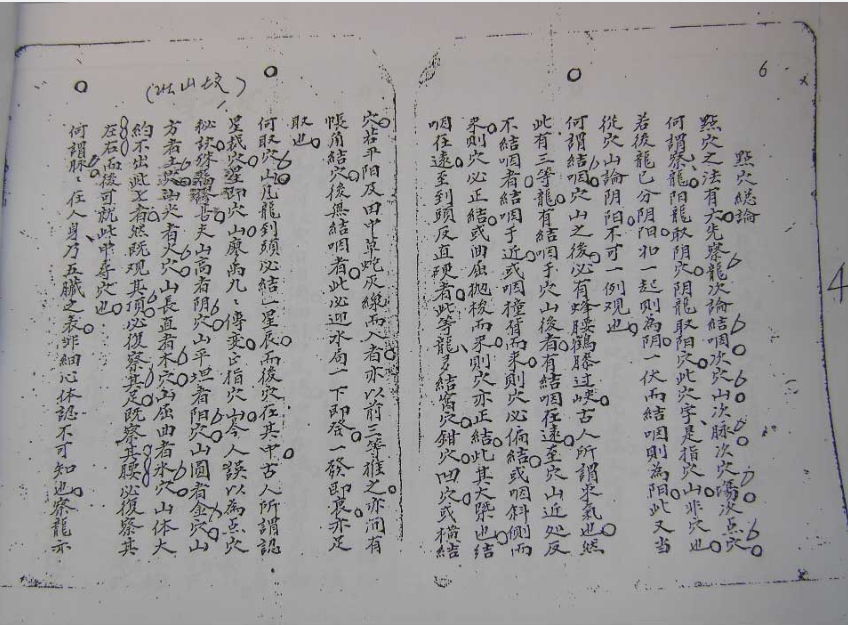 6
點穴總論
點穴之法有六先察龍次論結咽次穴山次脉次穴場次点穴
何謂察龍陽龍取阴穴阴龍取阳穴此穴字是指穴山非穴也
若後龍已分阴阳和一起則為阴一伏而結咽則為阳此又当
從穴山論阴阳不可一例观也
何謂結咽穴山之後必有蜂腰鶴膝过峡古人所謂束氣也然
此有三等龍有結咽于穴山後者有結咽在遠至穴山近处反
不結咽者結咽于近或咽撞背而来則穴必偏結或咽斜側而
来則穴必正結或曲屈抛梭而来則穴亦正結此其大槩也結
咽在遠至到頭反直硬者此等龍多結窩穴鉗穴凹穴或橫結
穴若平阳及田中草蛇灰線而入者亦以前三等推之亦间有
帳角結穴後無結咽者此必迎水局一下即發一發即衰亦足
取也
何取穴山凡龍到頭必結一星辰而後穴在其中古人所謂認
星捉穴星即穴山廖禹九傳变正指穴山今人誤以為点穴
秘訣殊 夫山高者阴穴山平坦者阳穴山圓者金穴山
方者土穴山尖者火穴山長直者木穴山屈曲者水穴山体大
約不出此七者然既观其頂必復察其足既察其腰必復察其
左右而後可就此中尋穴也
何謂脉脉在人身乃五臟之表非細心体認不可知也察龍亦
4